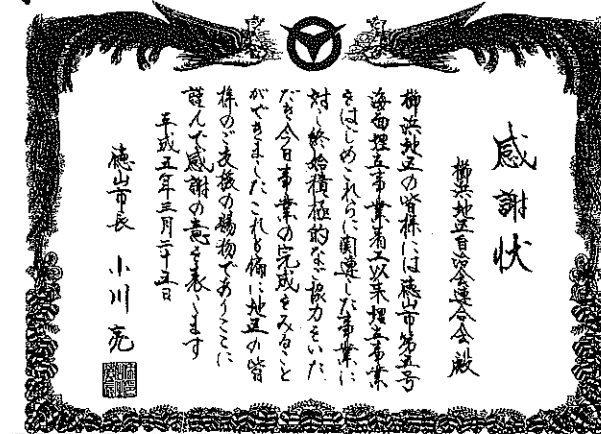 感謝状
櫛浜地区自治会連合会殿
櫛浜地区の皆様には徳山市第五号
海面埋立事業着工以来埋立事業
をはじめこれらに関連した事業に
対し終始積極的なご協力をいた
だき今日事業の完成をみること
ができましたこれも偏に地区の皆
様のご支援の賜物でありここに
謹んで感謝の意を表します
平成五年三月二十五日
徳山市長 小川亮